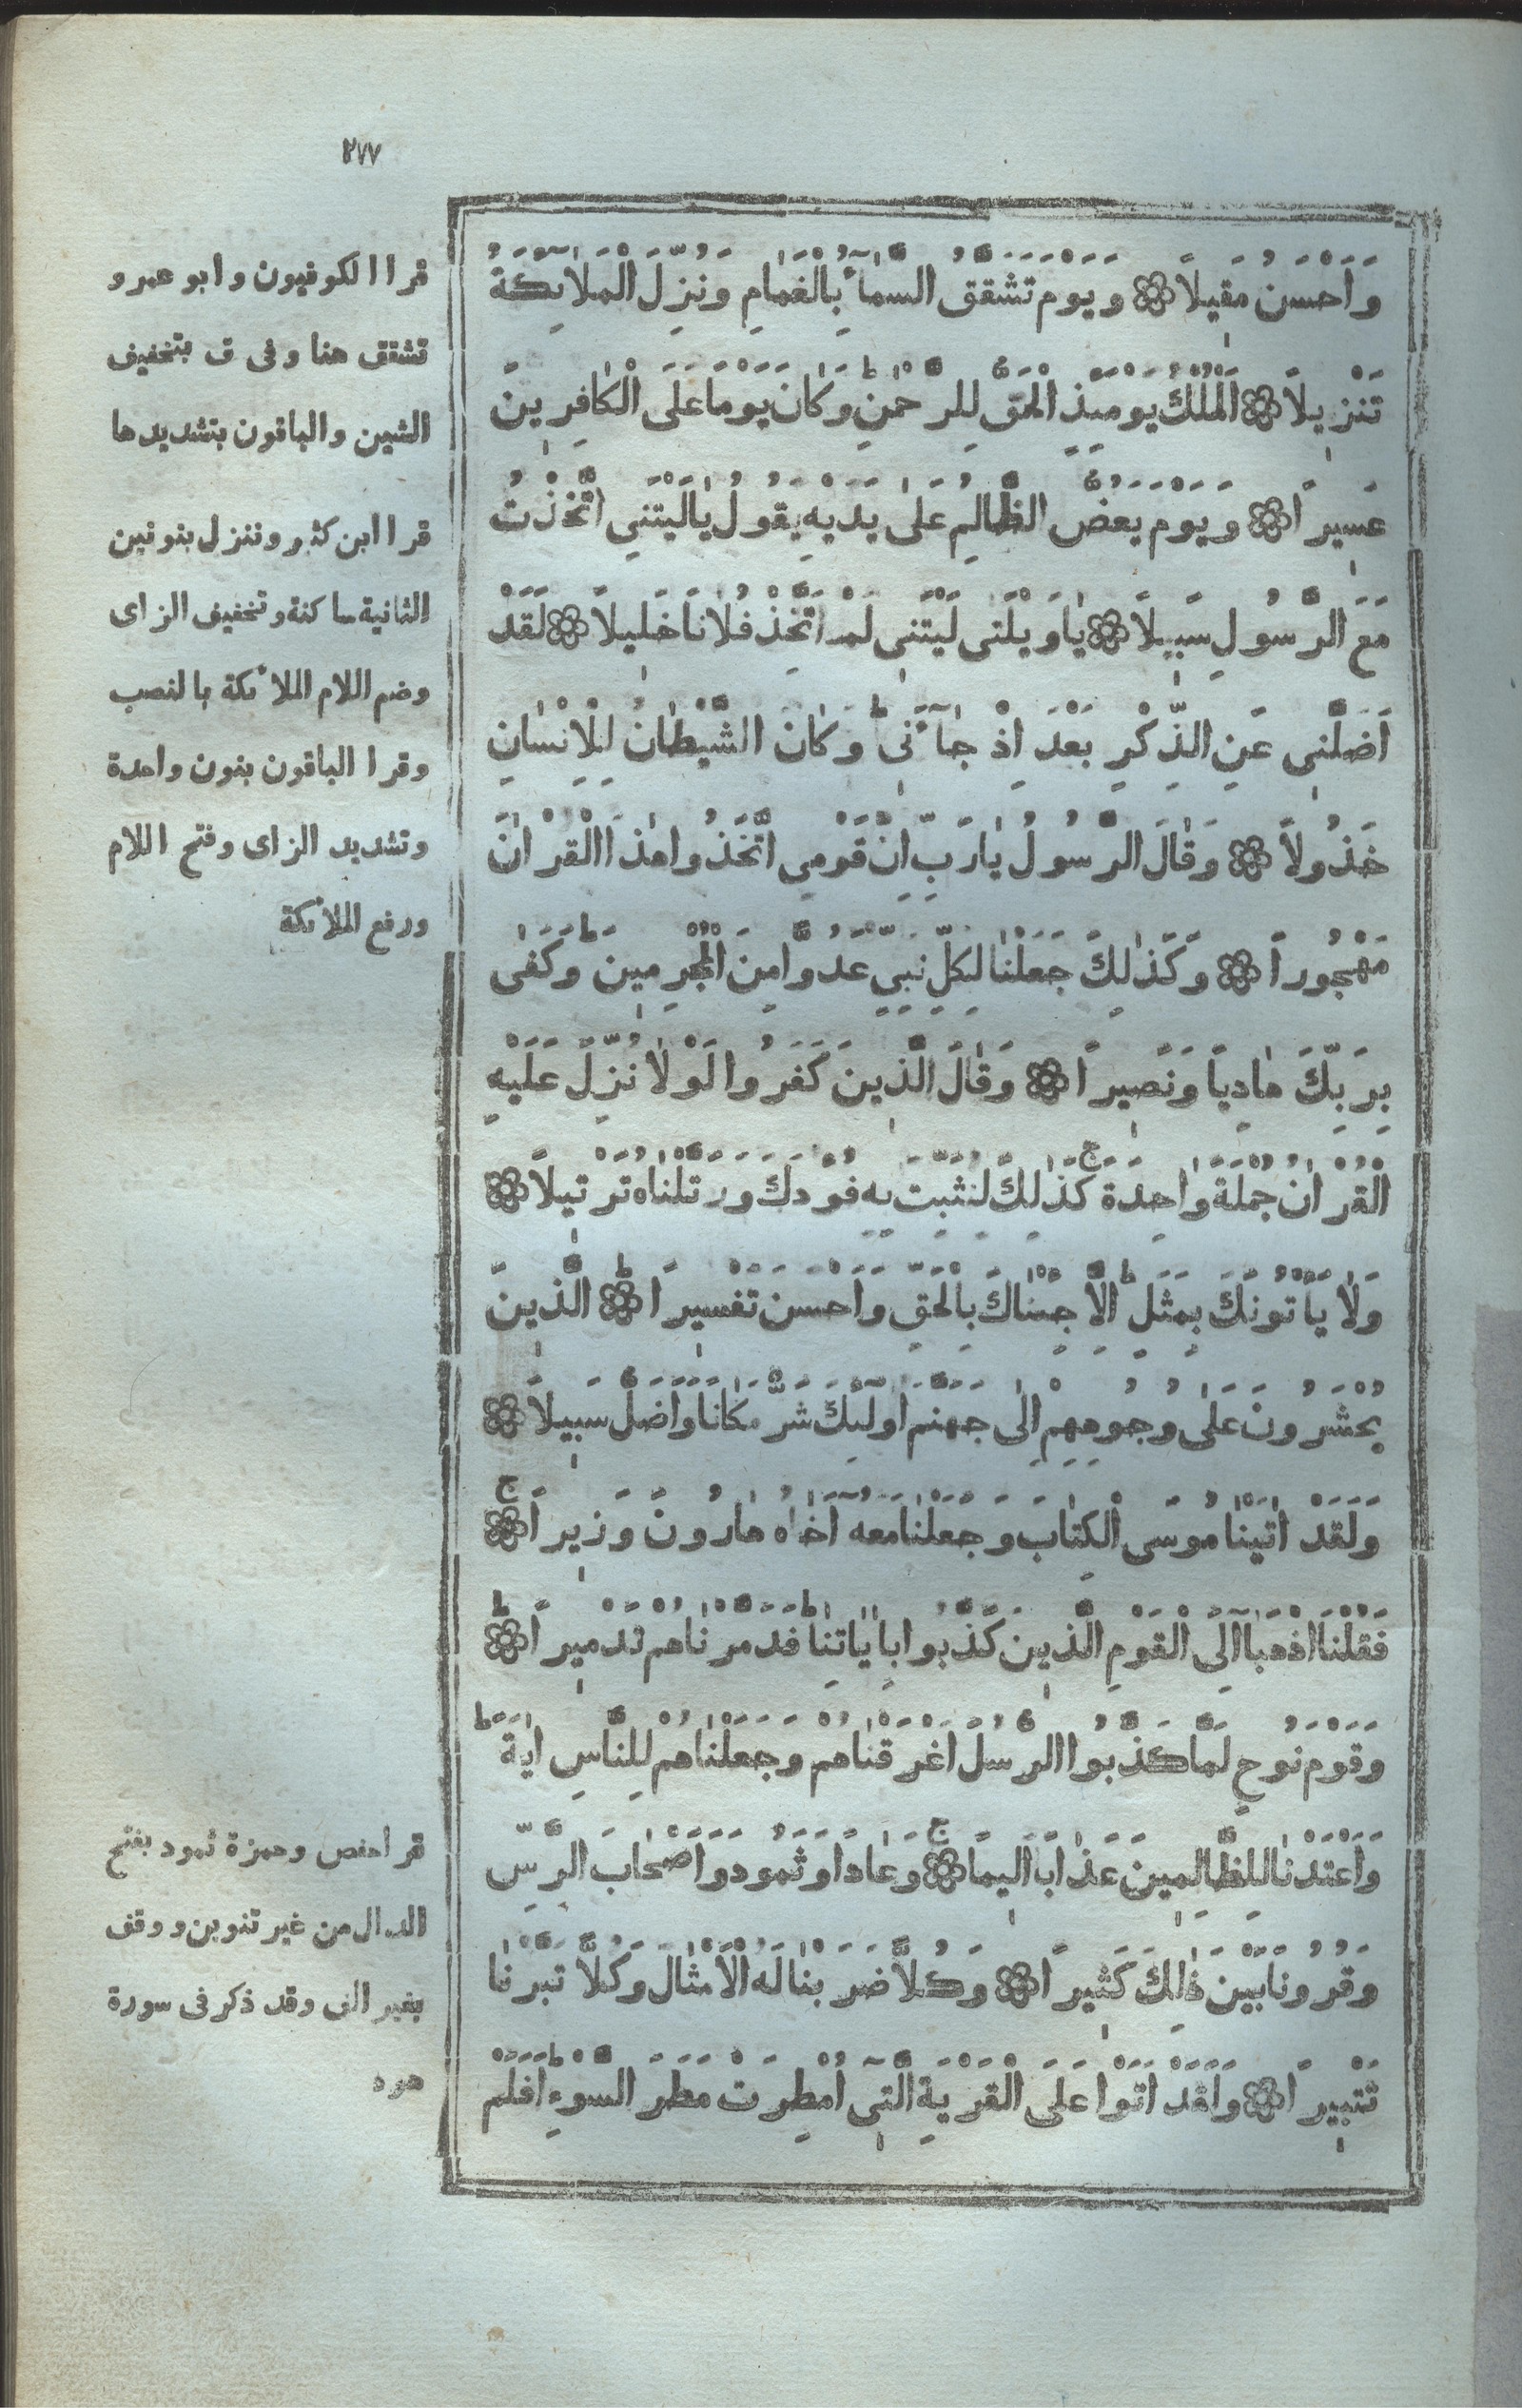 ٢٧٧
وَاَحْسَنُ مَقِيلاً ۞ وَيَوْمَ تَشَقَّقُ السَّمَآءُ بِالْغَمَامِ وَنُزِّلَ الْمَلَآئِكَةُ
تَنْزِيلاً ۞ اَلْمُلْكُ يَوْمَئِذٍ الْحَقُّ لِلرَّحْمٰنِ ط وَكَانَ يَوْمًا عَلَى الْكَافِرِينَ
عَسِيرًا ۞ وَيَوْمَ يَعَضُّ الظَّالِمُ عَلٰى يَدَيْهِ يَقُولُ يَالَيْتَنِى اتَّخَذْتُ
مَعَ الرَّسُولِ سَبِيلاً ۞ يَاوَيْلَتٰى لَيْتَنِى لَمْ اَتَّخِذْ فُلَانًا خَلِيلاً ۞ لَقَدْ
اَضَلَّنِى عَنِ الذِّكْرِ بَعْدَ اِذْ جَآءَنِى ط وَكَانَ الشَّيْطَانُ لِلْاِنْسَانِ
خَذُولاً ۞ وَقَالَ الرَّسُولُ يَارَبِّ اِنَّ قَوْمِى اتَّخَذُوا هٰذَا الْقُرْاٰنَ
مَهْجُورًا ۞ وَكَذٰلِكَ جَعَلْنَا لِكُلِّ نَبِىٍّ عَدُوًّا مِنَ الْمُجْرِمِينَ ط وَكَفٰى
بِرَبِّكَ هَادِيًا وَنَصِيرًا ۞ وَقَالَ الَّذِينَ كَفَرُوا لَوْلَا نُزِّلَ عَلَيْهِ
الْقُرْاٰنُ جُمْلَةً وَاحِدَةً ج كَذٰلِكَ لِنُثَبِّتَ بِهِ فُؤَدَكَ وَرَتَّلْنَاهُ تَرْتِيلاً ۞
وَلَا يَأْتُونَكَ بِمَثَلٍ ط اِلَّا جِئْنَاكَ بِالْحَقِّ وَاَحْسَنَ تَفْسِيرًا ط ۞ الَّذِينَ
يُحْشَرُونَ عَلٰى وُجُوهِهِمْ اِلٰى جَهَنَّمَ اُولٰئِكَ شَرٌّ مَكَانًا وَاَضَلُّ سَبِيلاً ۞
وَلَقَدْ اٰتَيْنَا مُوسَى الْكِتَابَ وَجَعَلْنَا مَعَهُ اَخَاهُ هَارُونَ وَزِيرًا ج ۞
فَقُلْنَا اذْهَبَا اِلَى الْقَوْمِ الَّذِينَ كَذَّبُوا بِاٰيَاتِنَا ط فَدَمَّرْنَاهُمْ تَدْمِيرًا ط ۞
وَقَوْمَ نُوحٍ لَمَّا كَذَّبُوا الرُّسُلَ اَغْرَقْنَاهُمْ وَجَعَلْنَاهُمْ لِلنَّاسِ اٰيَةً ط
وَاَعْتَدْنَا لِلظَّالِمِينَ عَذَابًا اَلِيمًا ج ۞ وَعَادًا وَثَمُودَ وَاَصْحَابَ الرَّسِّ
وَقُرُونًا بَيْنَ ذٰلِكَ كَثِيرًا ۞ وَكُلًّا ضَرَبْنَا لَهُ الْاَمْثَالَ وَكُلًّا تَبَّرْنَا
تَتْبِيرًا ۞ وَلَقَدْ اَتَوْا عَلَى الْقَرْيَةِ الَّتِى اُمْطِرَتْ مَطَرَ السَّوْءِ ط اَفَلَمْ
قرا الكوفيون وابو عمرو
تشقق هنا وفى ق بتخفيف
الشين والباقون بتشديدها
قرا ابن كثير وننزل بنونين
الثانية ساكنة وتخفيف الزاى
وضم اللام الملائكة بالنصب
وقرا الباقون بنون واحدة
وتشديد الزاى وفتح اللام
ورفع الملائكة
قرا حفص وحمزة ثمود بفتح
الدال من غير تنوين ووقف
بغير الف وقد ذكر فى سورة
هود